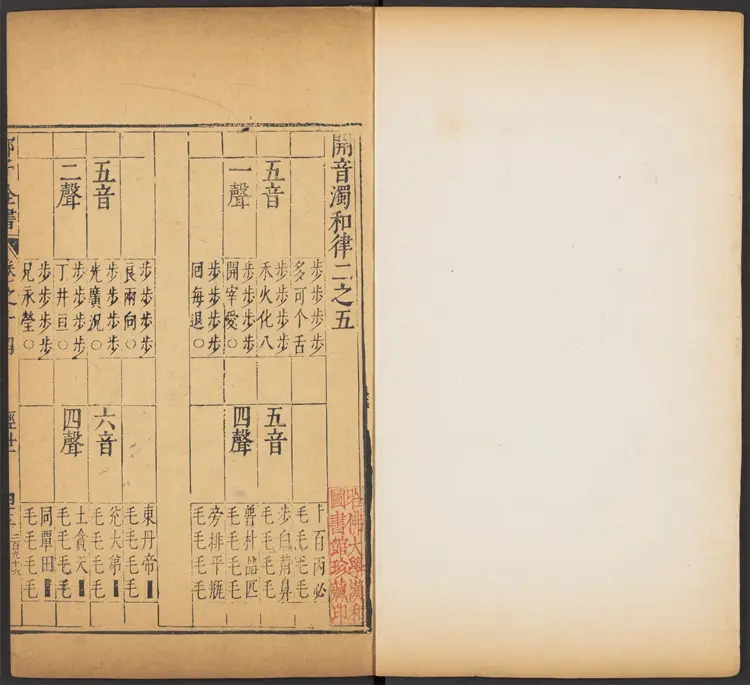 開音濁和律二之五
五音
一聲
步步步步
多可个舌
步步步步
禾火化八
步步步步
開宰愛○
步步步步
回每退○
五音
四聲
卜百丙必
毛毛毛毛
步白荊鼻
毛毛毛毛
普朴品匹
毛毛毛毛
旁排平瓶
毛毛毛毛
五音
二聲
步步步步
良兩向○
步步步步
光廣況○
步步步步
丁井亘○
步步步步
兄永瑩○
六音
四聲
東丹帝
毛毛毛毛
兊大弟
毛毛毛毛
土貪天
毛毛毛毛
同覃田
毛毛毛毛
全書
卷之十四
經世
二百九十六
哈佛大學漢和
圖書館珍藏印